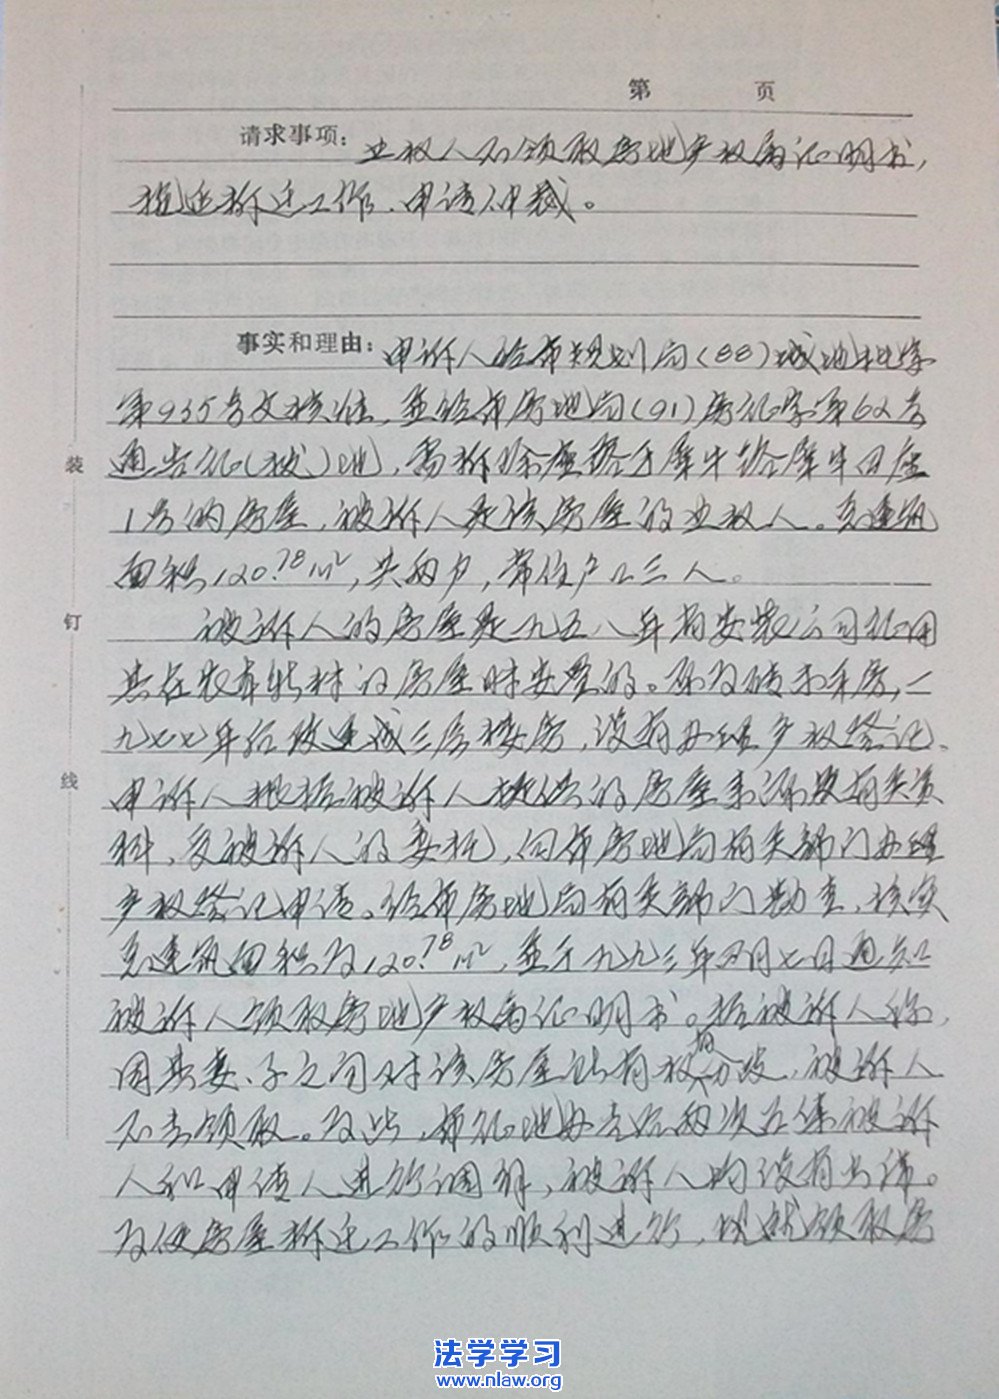 第 页
请求事项：业权人不领取房地产权属证明书，
拖延拆迁工作、申请仲裁。
事实和理由：申诉人经市规划局(88)城地批字
第935号文核准，并经市房地局(91)房征字第62号
通告征(拨)地，需拆除座落于犀牛路犀牛四座
1号的房屋，被诉人是该房屋的业权人。其建筑
面积120.78m²，共两户，常住户口三人。
被诉人的房屋是一九五八年有安装公司征用
其在农车新村的房屋时安置的。原为砖木平房，一
九七七年后改建成三层楼房，没有办理产权登记、
申诉人根据被诉人提供的房屋来源及有关资
料，受被诉人的委托，向市房地局有关部门办理
产权登记申请。经市房地局有关部门勘查，核实
其建筑面积为120.78m²，并于一九九三年四月七日通知
被诉人领取房地产权属证明书。据被诉人称，
因其妻、子之间对该房屋占有权有分歧，被诉人
不去领取。为此，市征地办先后两次召集被诉
人和申请人进行调解，被诉人均没有出席。
为使房屋拆迁工作的顺利进行，现就领取房
装
订
线
法学学习
www.nlaw.org